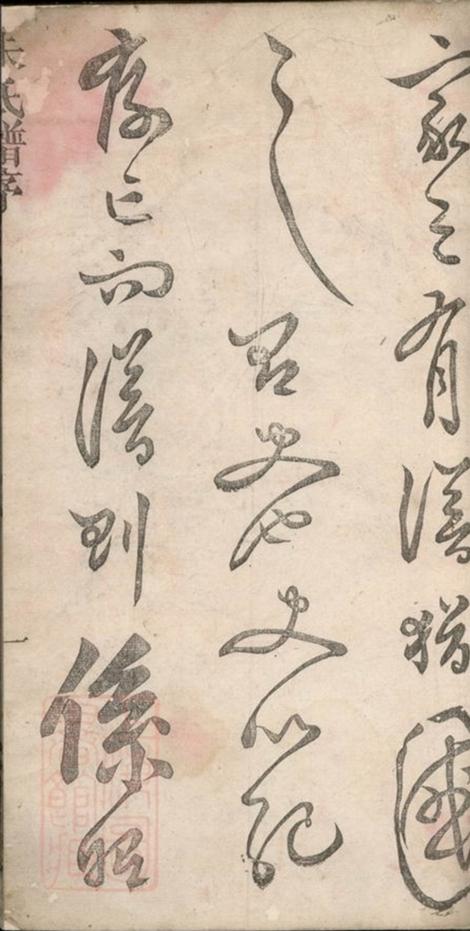 家之有譜猶國
之有史也史以紀
存亡而譜則係昭
朱氏譜序
一